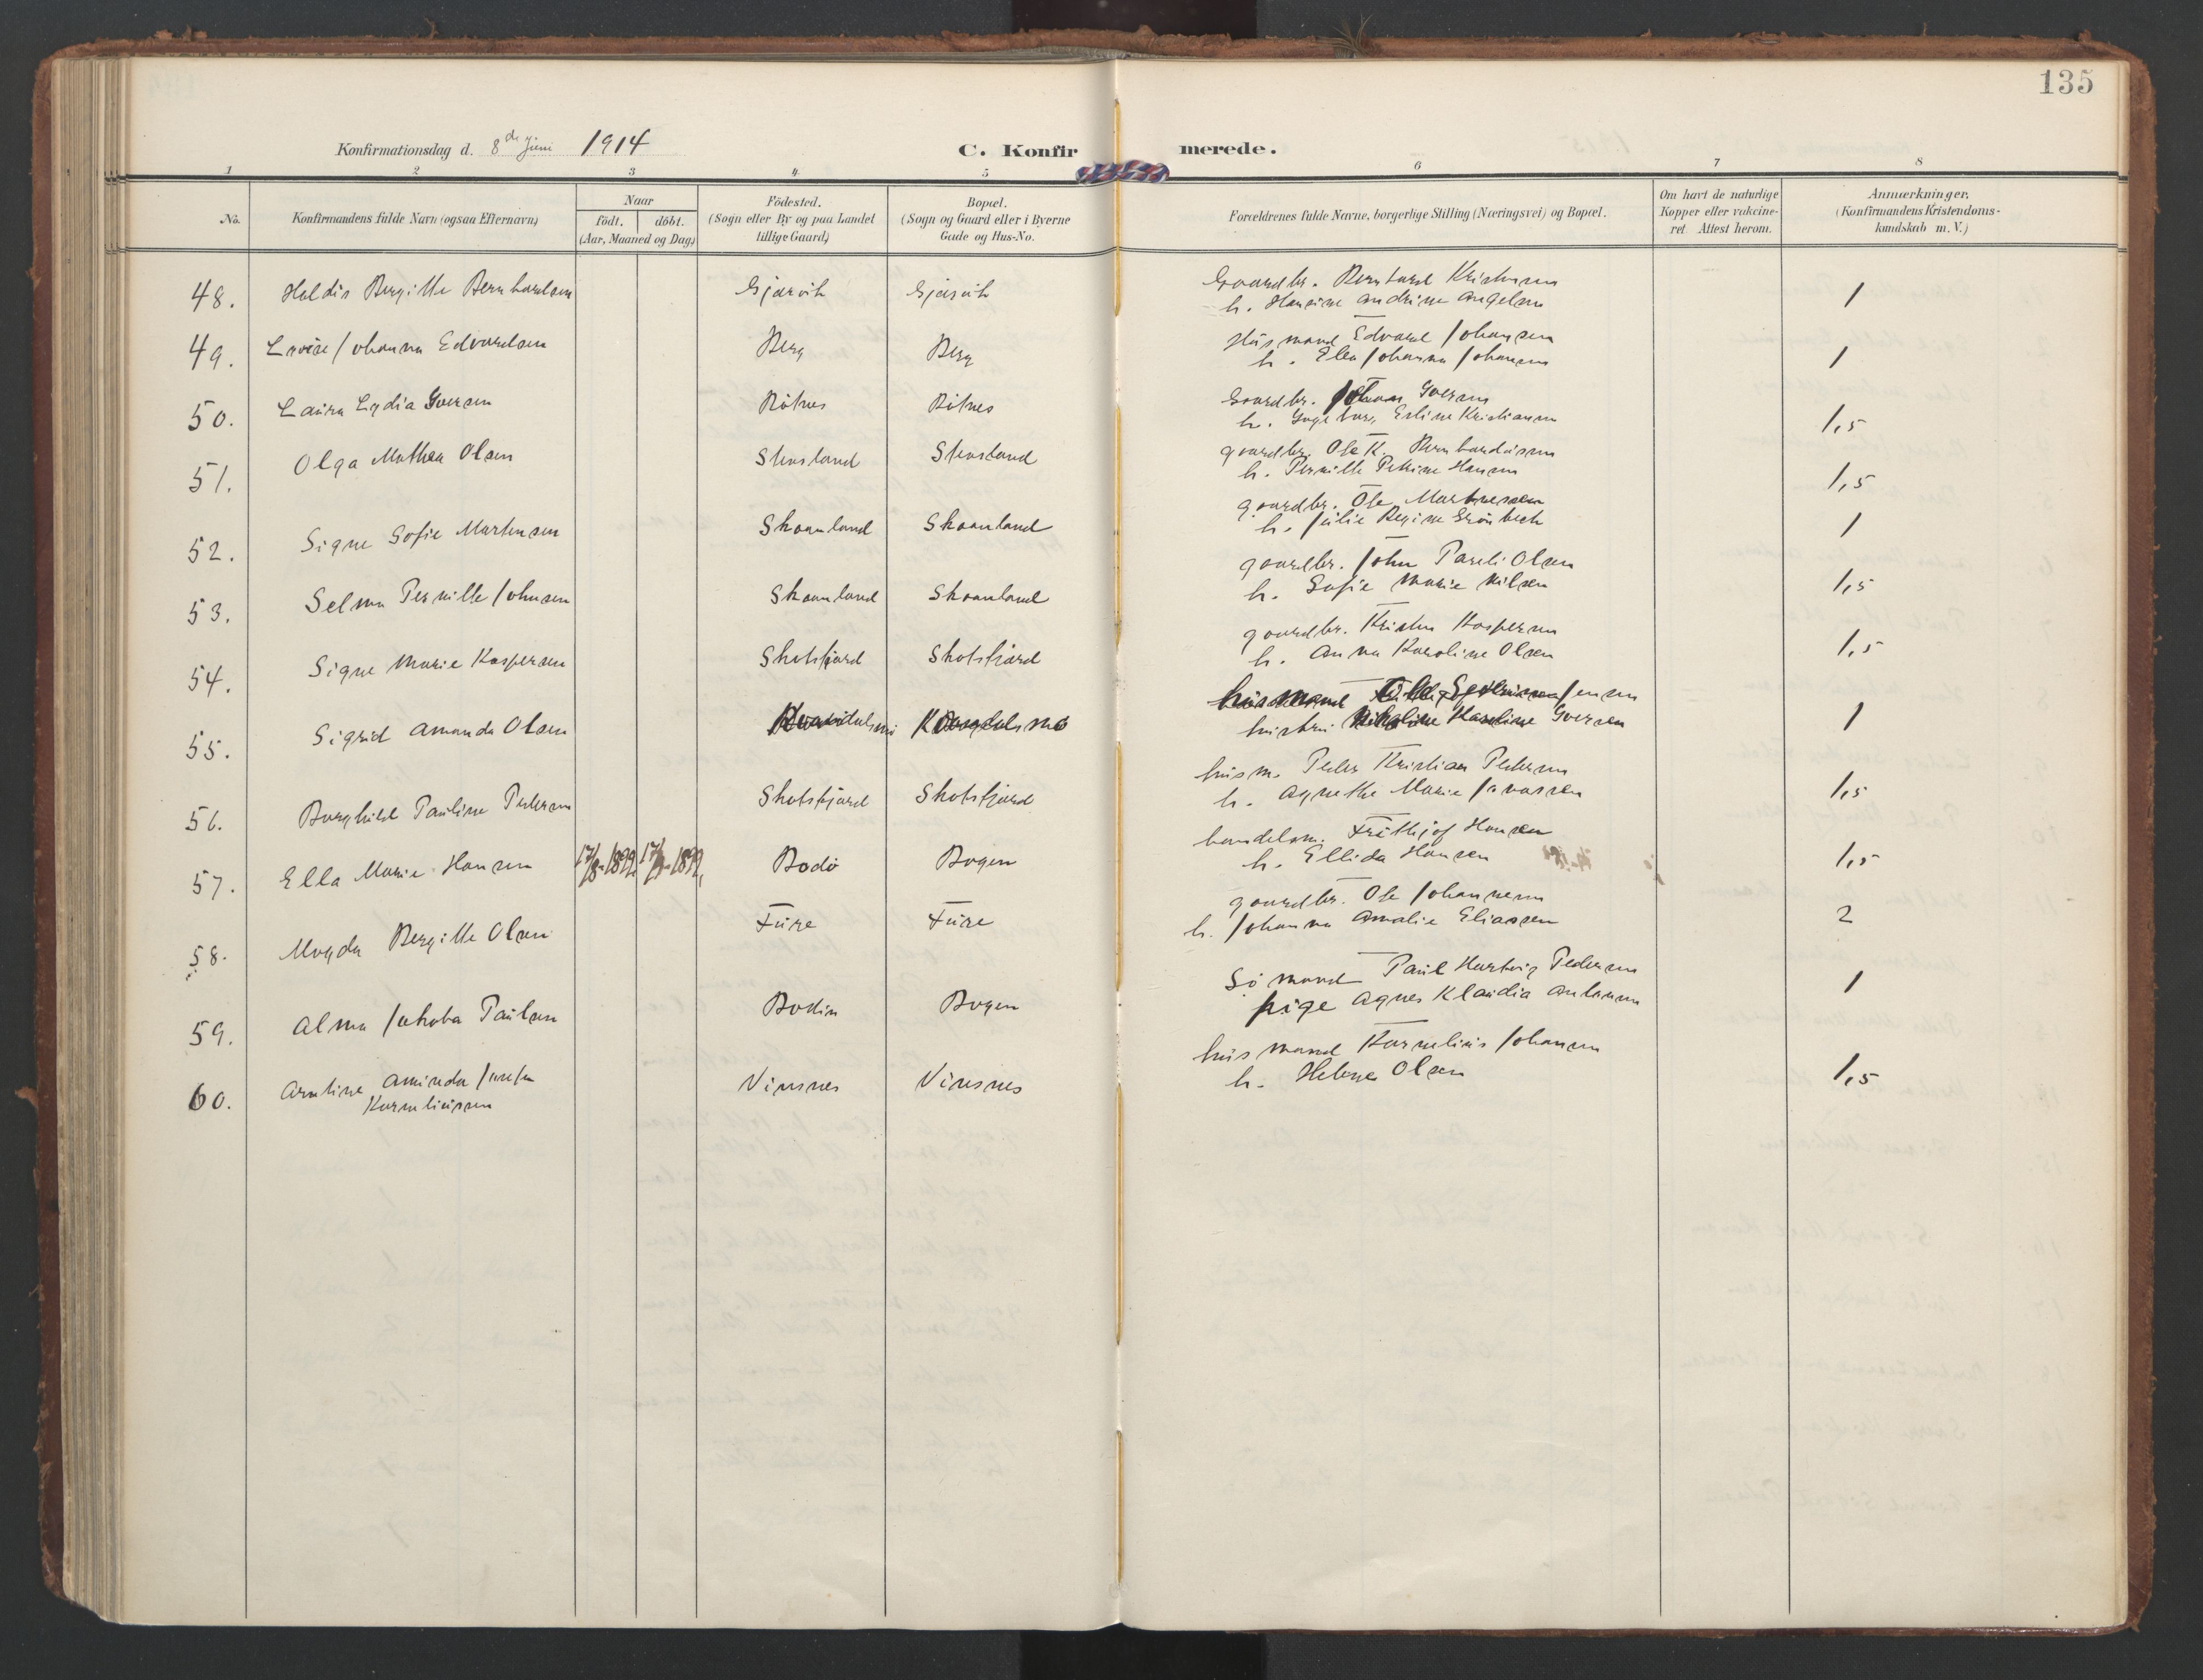 135
Konfirmationsdag d. 8de Juni 1914
C. Konfirmerede.
1 2 3 4. 5 6 7 8
No. Konfirmandens fulde Navn (ogsaa Efternavn) Naar födt. döbt. (Aar, Maaned og Dag) Födested. (Sogn eller By og paa Landet tillige Gaard) Bopæl. (Sogn og Gaard eller i Byerne Gade og Hus-No. Forældrenes fulde Navne, borgerlige Stilling (Næringsvei) og Bopæl. Om havt de naturlige Kopper eller vakcineret. Attest herom. Anmærkninger. (Konfirmandens Kristendomskundskab m. V.)
48. Haldis Bergitte Bernhardsen Gjærvik Gjærvik Gaardbr. Bernhard Kristensen 1
h. Hansine Andrine Angelsen
49. Lovise Johanna Edvardsen Berg Berg Husmand Edvard Johansen 1
h. Elen Johanna Johansen
50. Laura Lydia Iversen Bötnes Bötnes Gaardbr. Johan Iversen 1,5
h. Ingeborg Erline Kristiansen
51. Olga Mathea Olsen Stensland Stensland gaardbr. Ole K. Bernhardusen 1,5
h. Pernille Petrine Hansen
52. Signe Sofie Martensen Skaanland Skaanland gaardbr. Ole Martinesen 1
h. Julie Regine Grönbech
53. Selma Pernille Johnsen Skaanland Skaanland gaardbr. John Pareli Olsen 1,5
h. Sofie Marie Nilsen
54. Signe Marie Kaspersen Skotsfjord Skotsfjord gaardbr. Kristen Kaspersen 1,5
h. Anna Karoline Olsen
55. Sigrid Amanda Olsen husmand Jensen 1
hustru Nikoline Karoline Iversen
56. Borghild Pauline Pedersen Skotsfjord Skotsfjord husm. Peder Kristian Pedersen 1,5
h. Agnethe Marie
57. Ella Marie Hansen 17/8-1899 Bodö Bogen handelsm. Frithjof Hansen 1,5
h. Ellida Hansen
58. Magda Bergitte Olsen Fure Fure gaardbr. Ole Johannesen 2
h. Johanna Amalie Eliassen
59. Alma Jakoba Paulsen Bodin Bogen Sömand Paul Hartvig Pedersen 1
pige Agnes Klaudia Antonsen
60. Arntine Aminda Vinsnes Vinsnes husmand Kornelius Johansen 1,5
Korneliussen h. Helene Olsen